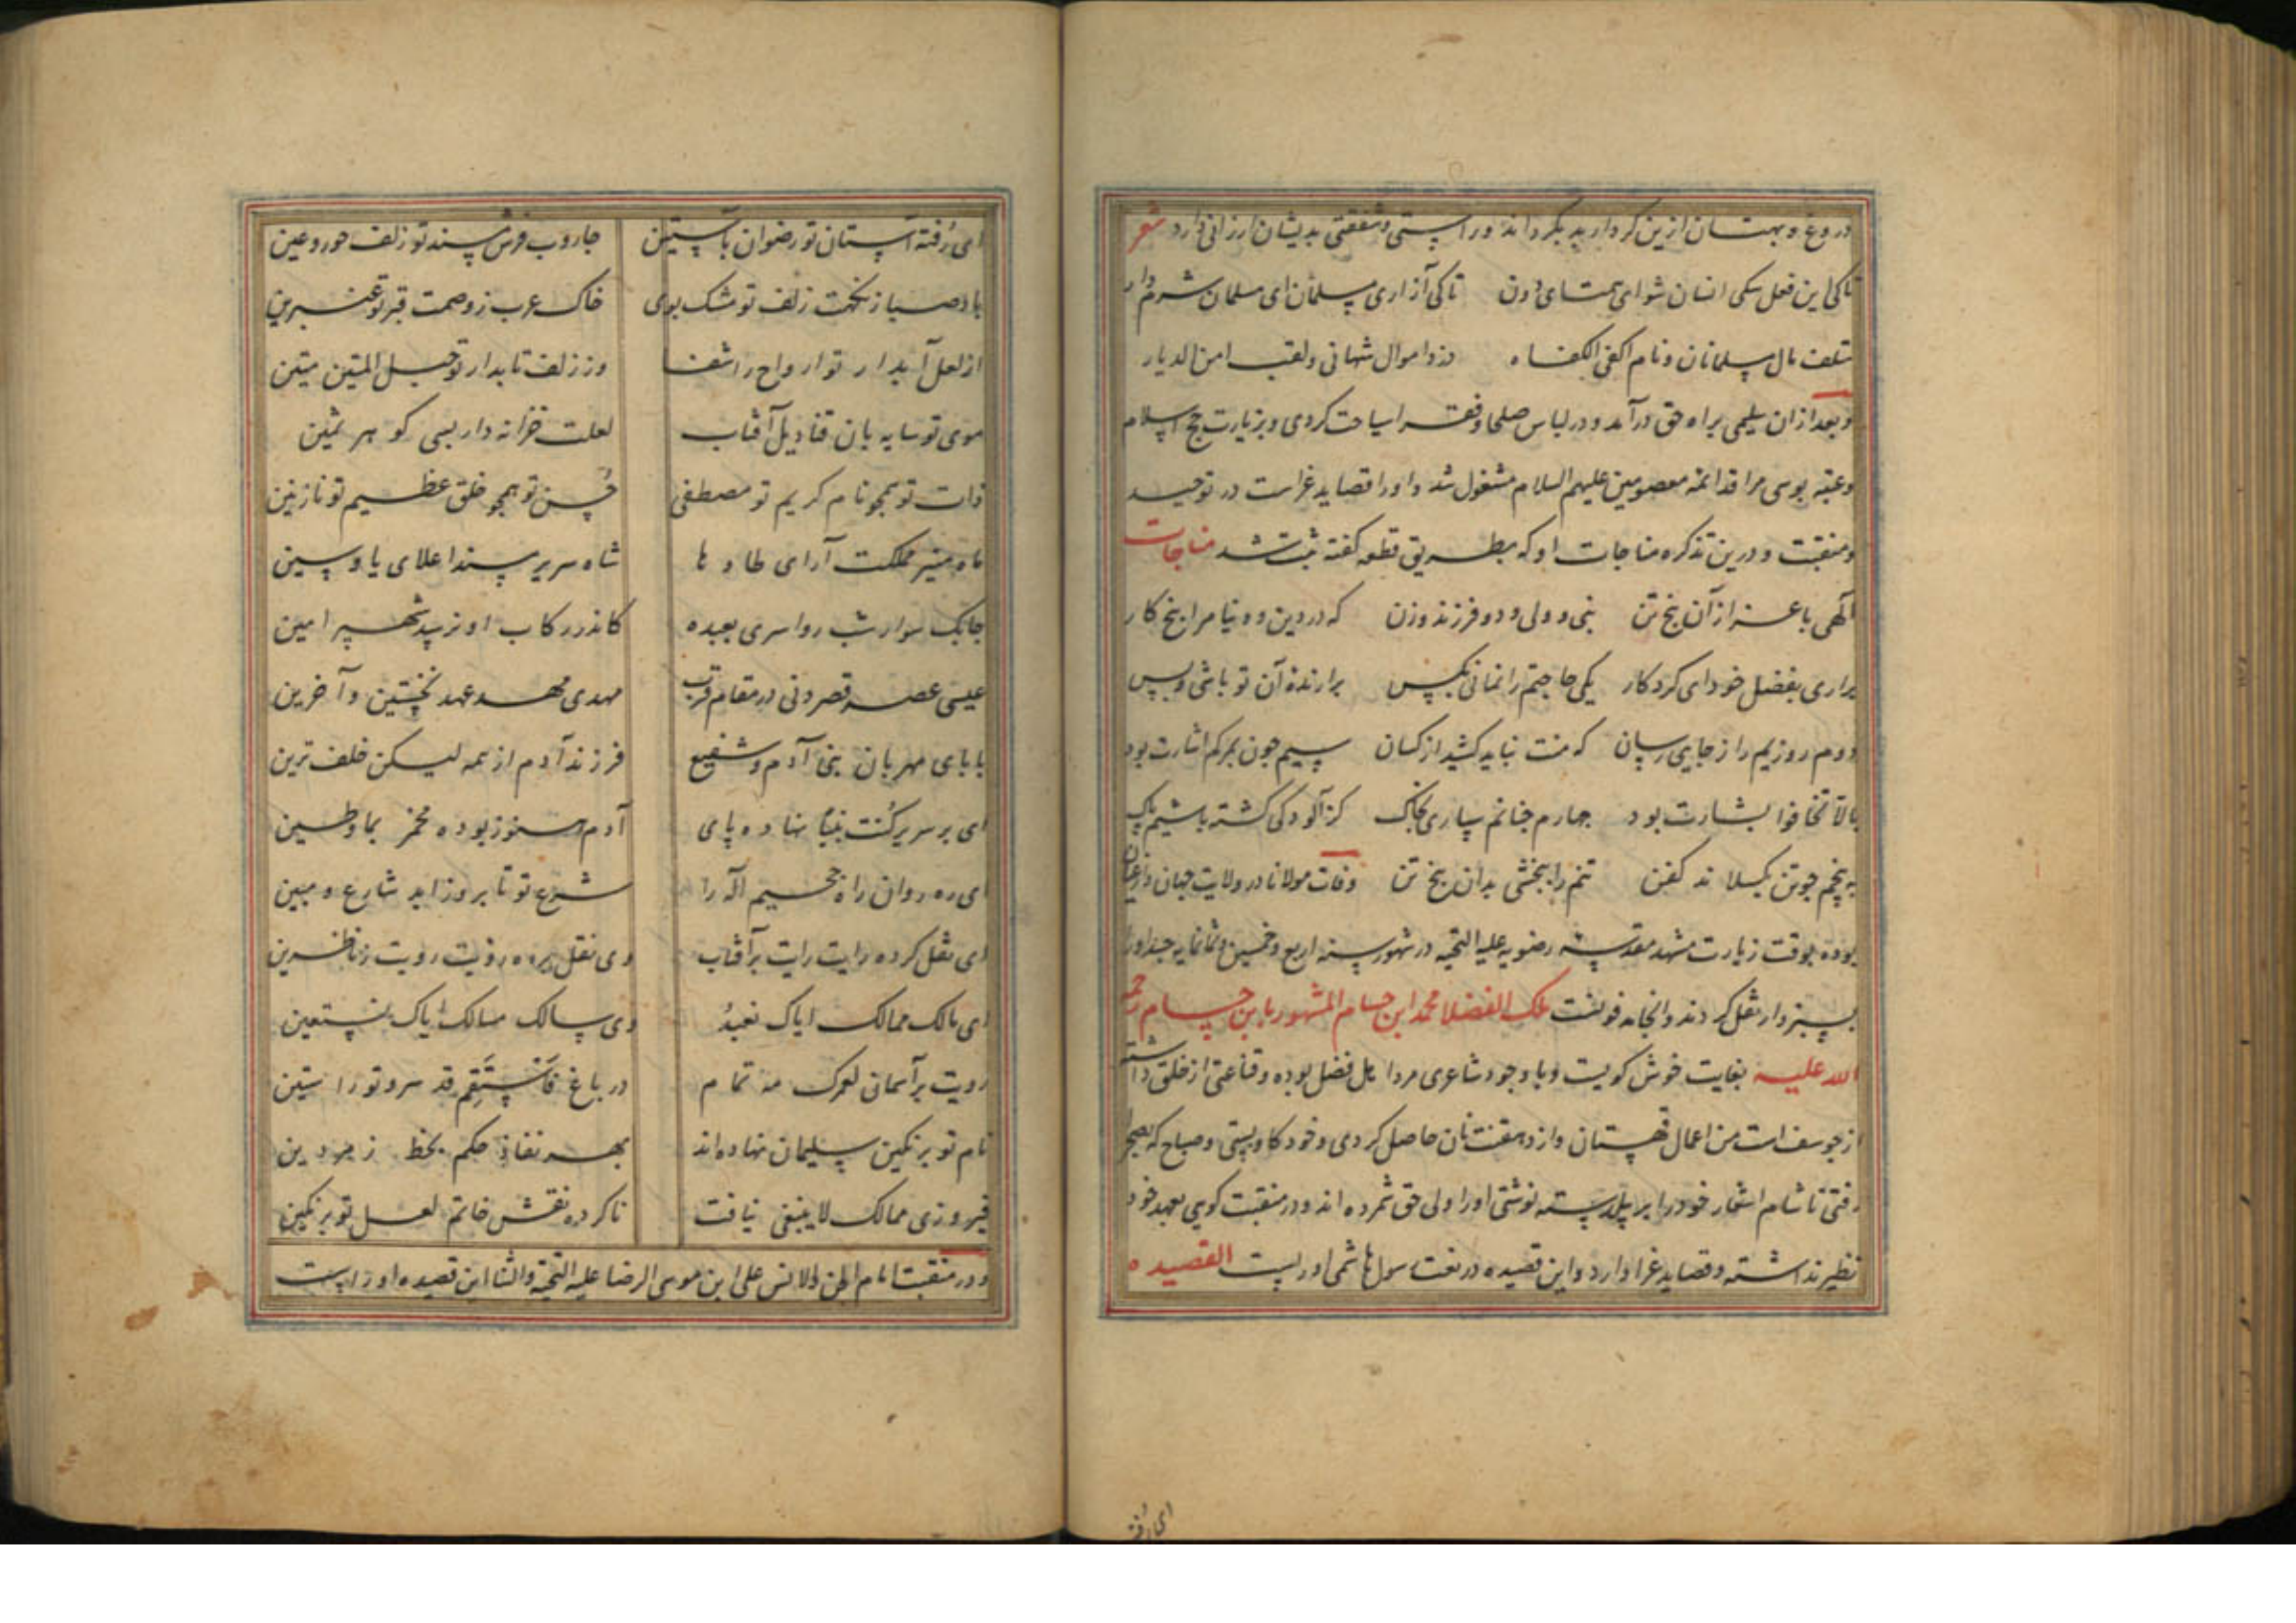 دروغ و بهتان ازین کردار بد بگرداند و راستی و شفقتی بدیشان ارزانی دارد شعر
تا کی این فعل سکی انسان شو ای همتای دون تا کی آزاری مسلمان ای مسلمان شرم دار
متلف مال مسلمانان و نام اکفی الکفاه دزد اموال شهانی و لقب امن الدیار
و بعد ازان سلیمی براه حق درآمد و در لباس صلحا و فقرا سیاحت کردی و بزیارت حج اسلام
و عتبه بوسی مراقد ائمه معصومین علیهم السلام مشغول شد و او را قصاید غراست در توحید
و منقبت و درین تذکره مناجات او که بطریق قطعه کفته ثبت شد مناجات
آلهی باعزاز آن پنج تن نبی و ولی و دو فرزند و زن که در دین و دنیا مرا پنج کار
براری بفضل خود ای کردکار یکی حاجتم را نمانی بکس برارنده آن تو باشی و بس
دوم روزیم را ز جایی رسان که منت نباید کشید از کسان سیم چون بمرکم اشارت بود
بالا تخافوا بشارت بود چهارم چنانم سپاری بخاک کز آلودکی کشته باشیم پاک
به پنجم چو تن بکسلاند کفن تنم را ببخشی بدان پنج تن وفات مولانا در ولایت جهان و ارغیان
بوده بوقت زیارت مشهد مقدسه رضویه علیه التحیه در شهور سنه اربع و خمسین و ثمانمایه جسد او را
بسبزوار نقل کردند و آنجا مدفونست ملک الفضلا محمد ابن حسام المشهور بابن حسام رحمه
الله علیه بغایت خوش کویست و با وجود شاعری مردا اهل فضل بوده و قناعتی از خلق داشته
از خوسف است من اعمال قهستان و از دهقنت نان حاصل کردی و خود کاو بستی و صباح که بصحرا
رفتی تا شام اشعار خود را بر بیل دسته نوشتی او را ولی حق شمرده اند و در منقبت کویی بعهد خود
نظیر نداشته و قصاید غرا دارد و این قصیده در نعت رسول هاشمی او راست القصیده
ای رفته
ای رُفته آستان تو رضوان بآستین جاروب فرش مسند تو زلف حور و عین
باد صبا ز نکهت زلف تو مشک بوی خاک عرب ز وصمت قبر تو عنبرین
از لعل آبدار تو ارواح را شفا وز زلف تابدار تو حبل المتین متین
موی تو سایه بان قنادیل آفتاب لعلت خزانه دار بسی کوهر ثمین
ذات تو همچو نام کریم تو مصطفی حُسن تو همچو خلق عظیم تو نازنین
ماه منیر مملکت آرای طا و ها شاه سریر مسند اعلای یا و سین
چابک سوار شب رو اسری بعبده کاندر رکاب او نرسد شهپر امین
عیسی عصر قصر دنی در مقام قرب مهدی مهد عهد نخستین و آخرین
بابای مهربان بنی آدم و شفیع فرزند آدم از همه لیکن خلف ترین
ای بر سریر کُنت نبیّا نهاده پای آدم هنوز بوده مخمر بما و طین
ای ره روان راه جسیم اله را شرع تو تا بروز ابد شارع و مبین
ای نقل کرده رایت رایت بر آفتاب وی نقل برده رؤیت رویت ز ناظرین
ای مالک ممالک ایاک نعبدُ وی سالک مسالک ایاک نستعین
رویت بر آسمان لعمرک مه تمام در باغ فَاستَقِم قد سرو تو راستین
نام تو بر نکین سلیمان نهاده اند بهر نفاذ حکم بخط زمردین
فیروزی ممالک لاینبغی نیافت ناکرده نقش خاتم لعل تو بر نکین
و در منقبت امام الجن و الانس علی ابن موسی الرضا علیه التحیة و الثنا این قصیده او راست